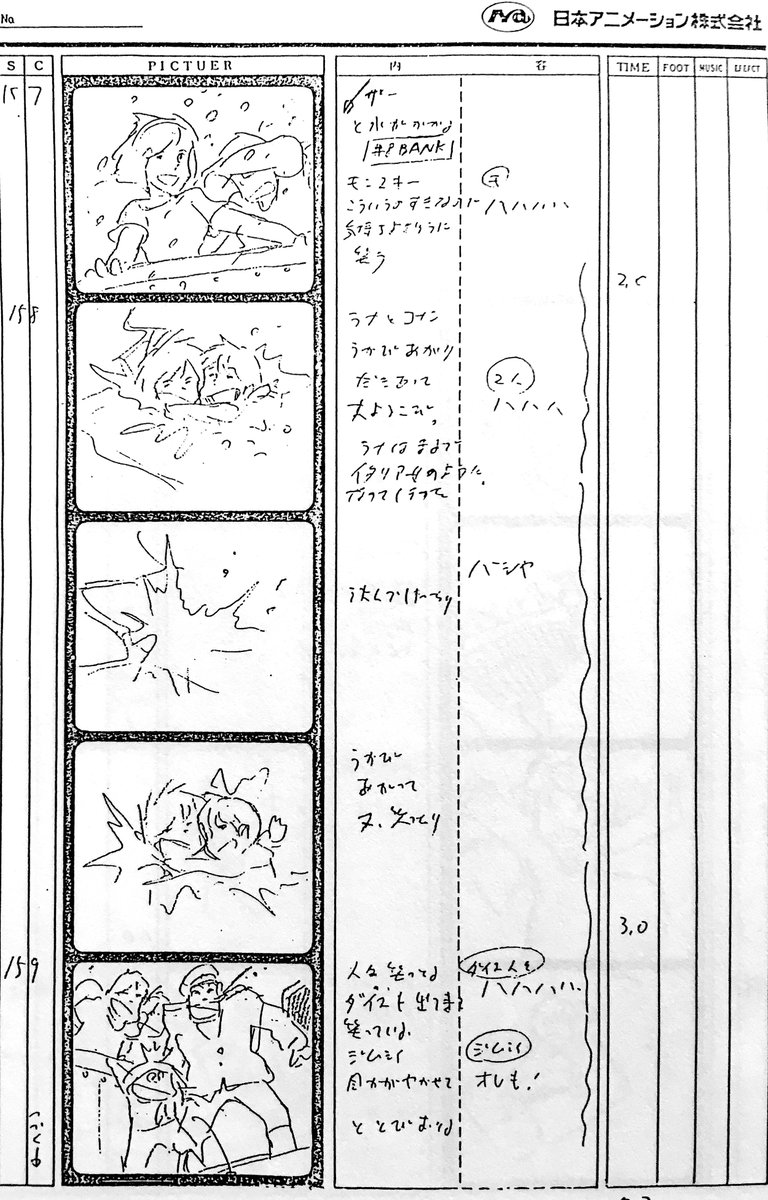 No
日本アニメーション株式会社
S C PICTUER 内容 TIME FOOT MUSIC EFFECT
157
ザー
と水がかかる
#8 BANK
モンスキー
こういうのすきなのに
気持よさそうに
笑う
ハハハハ
2.0
158
ラナとコナン
うかびあがり
だきあって
大よろこび。
ラナはまるで
イタリア女のように。
2人
ハハハハ
バシャ
うかび
あがって
又、笑ったり
3.0
159
人々笑ってる
ダイスも出てきて
笑っている
ジムシイ
目かがやかせて
ととびおりる
ダイス人々
ハハハハ
ジムシイ
オレも!